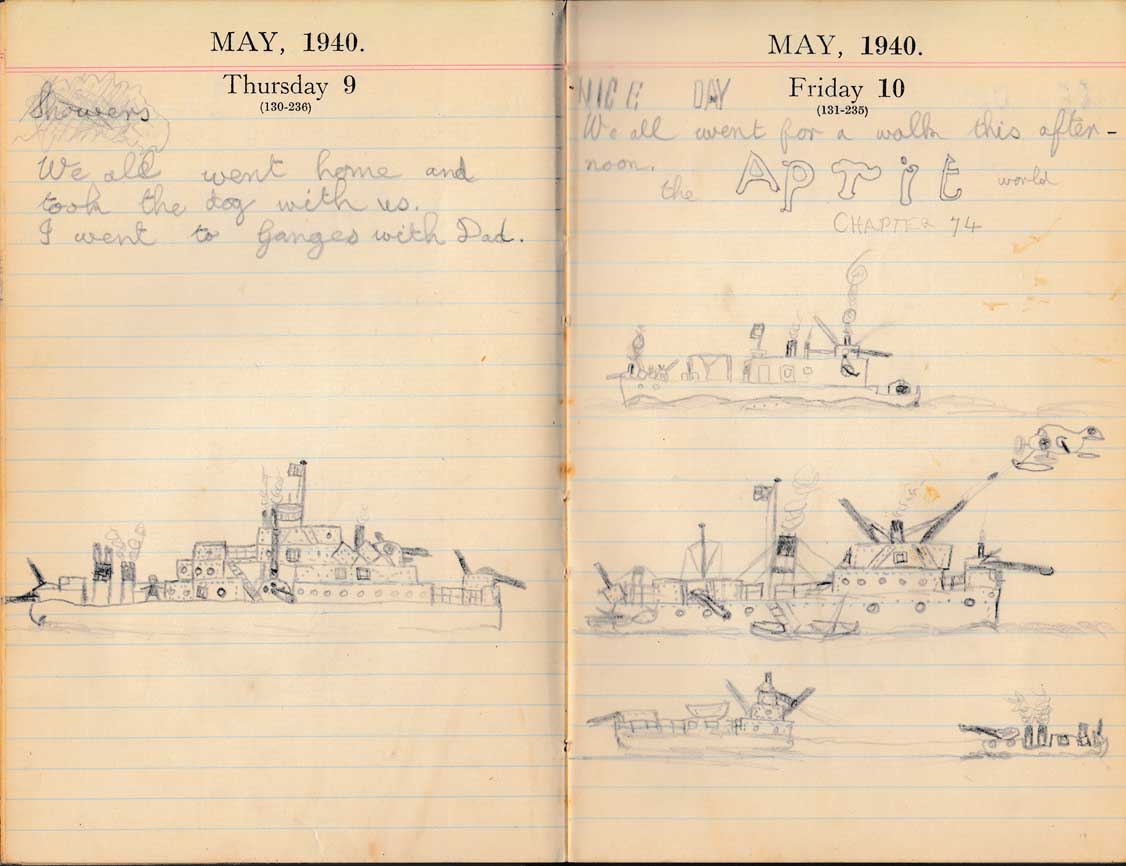 MAY, 1940.
Thursday 9
(130-236)
Showers
We all went home and
took the dog with us.
I went to Ganges with Dad.
MAY, 1940.
Friday 10
(131-235)
NICE DAY
We all went for a walk this after-
noon.
the APTiT world
CHAPTER 74